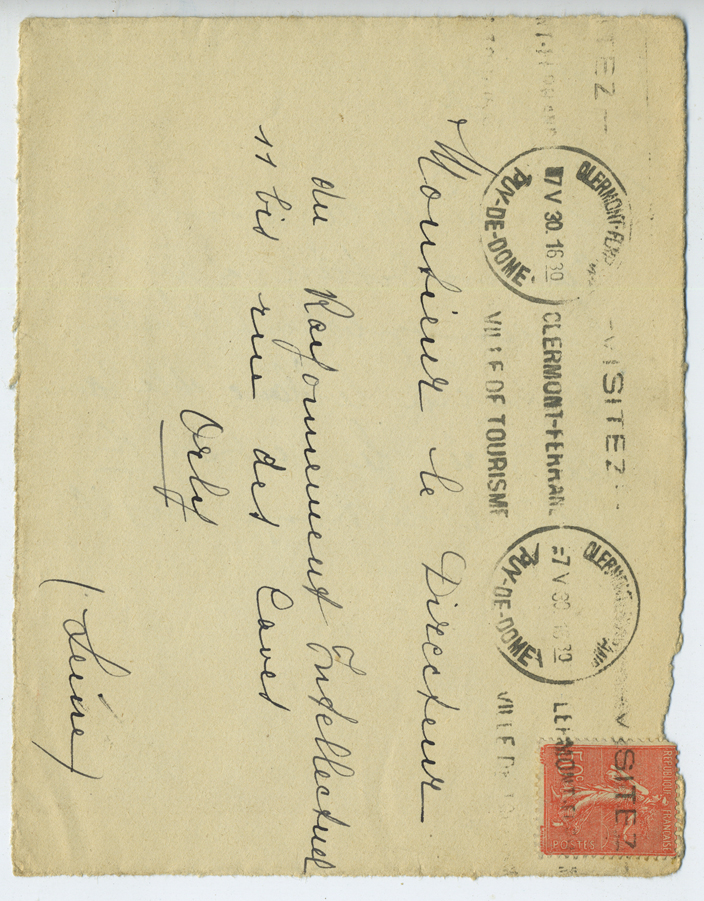 VISITEZ
CLERMONT-FERRAND
VILLE DE TOURISME
CLERMONT-FERRAND
7 V 30. 16 30
PUY-DE-DOME
CLERMONT-FERRAND
-7 V 30 16 30
PUY-DE-DOME
VISITEZ
REPUBLIQUE FRANÇAISE
50c
POSTES
Monsieur le Directeur
du Rayonnement Intellectuel
11 bis rue des Caves
Orly
(Seine)